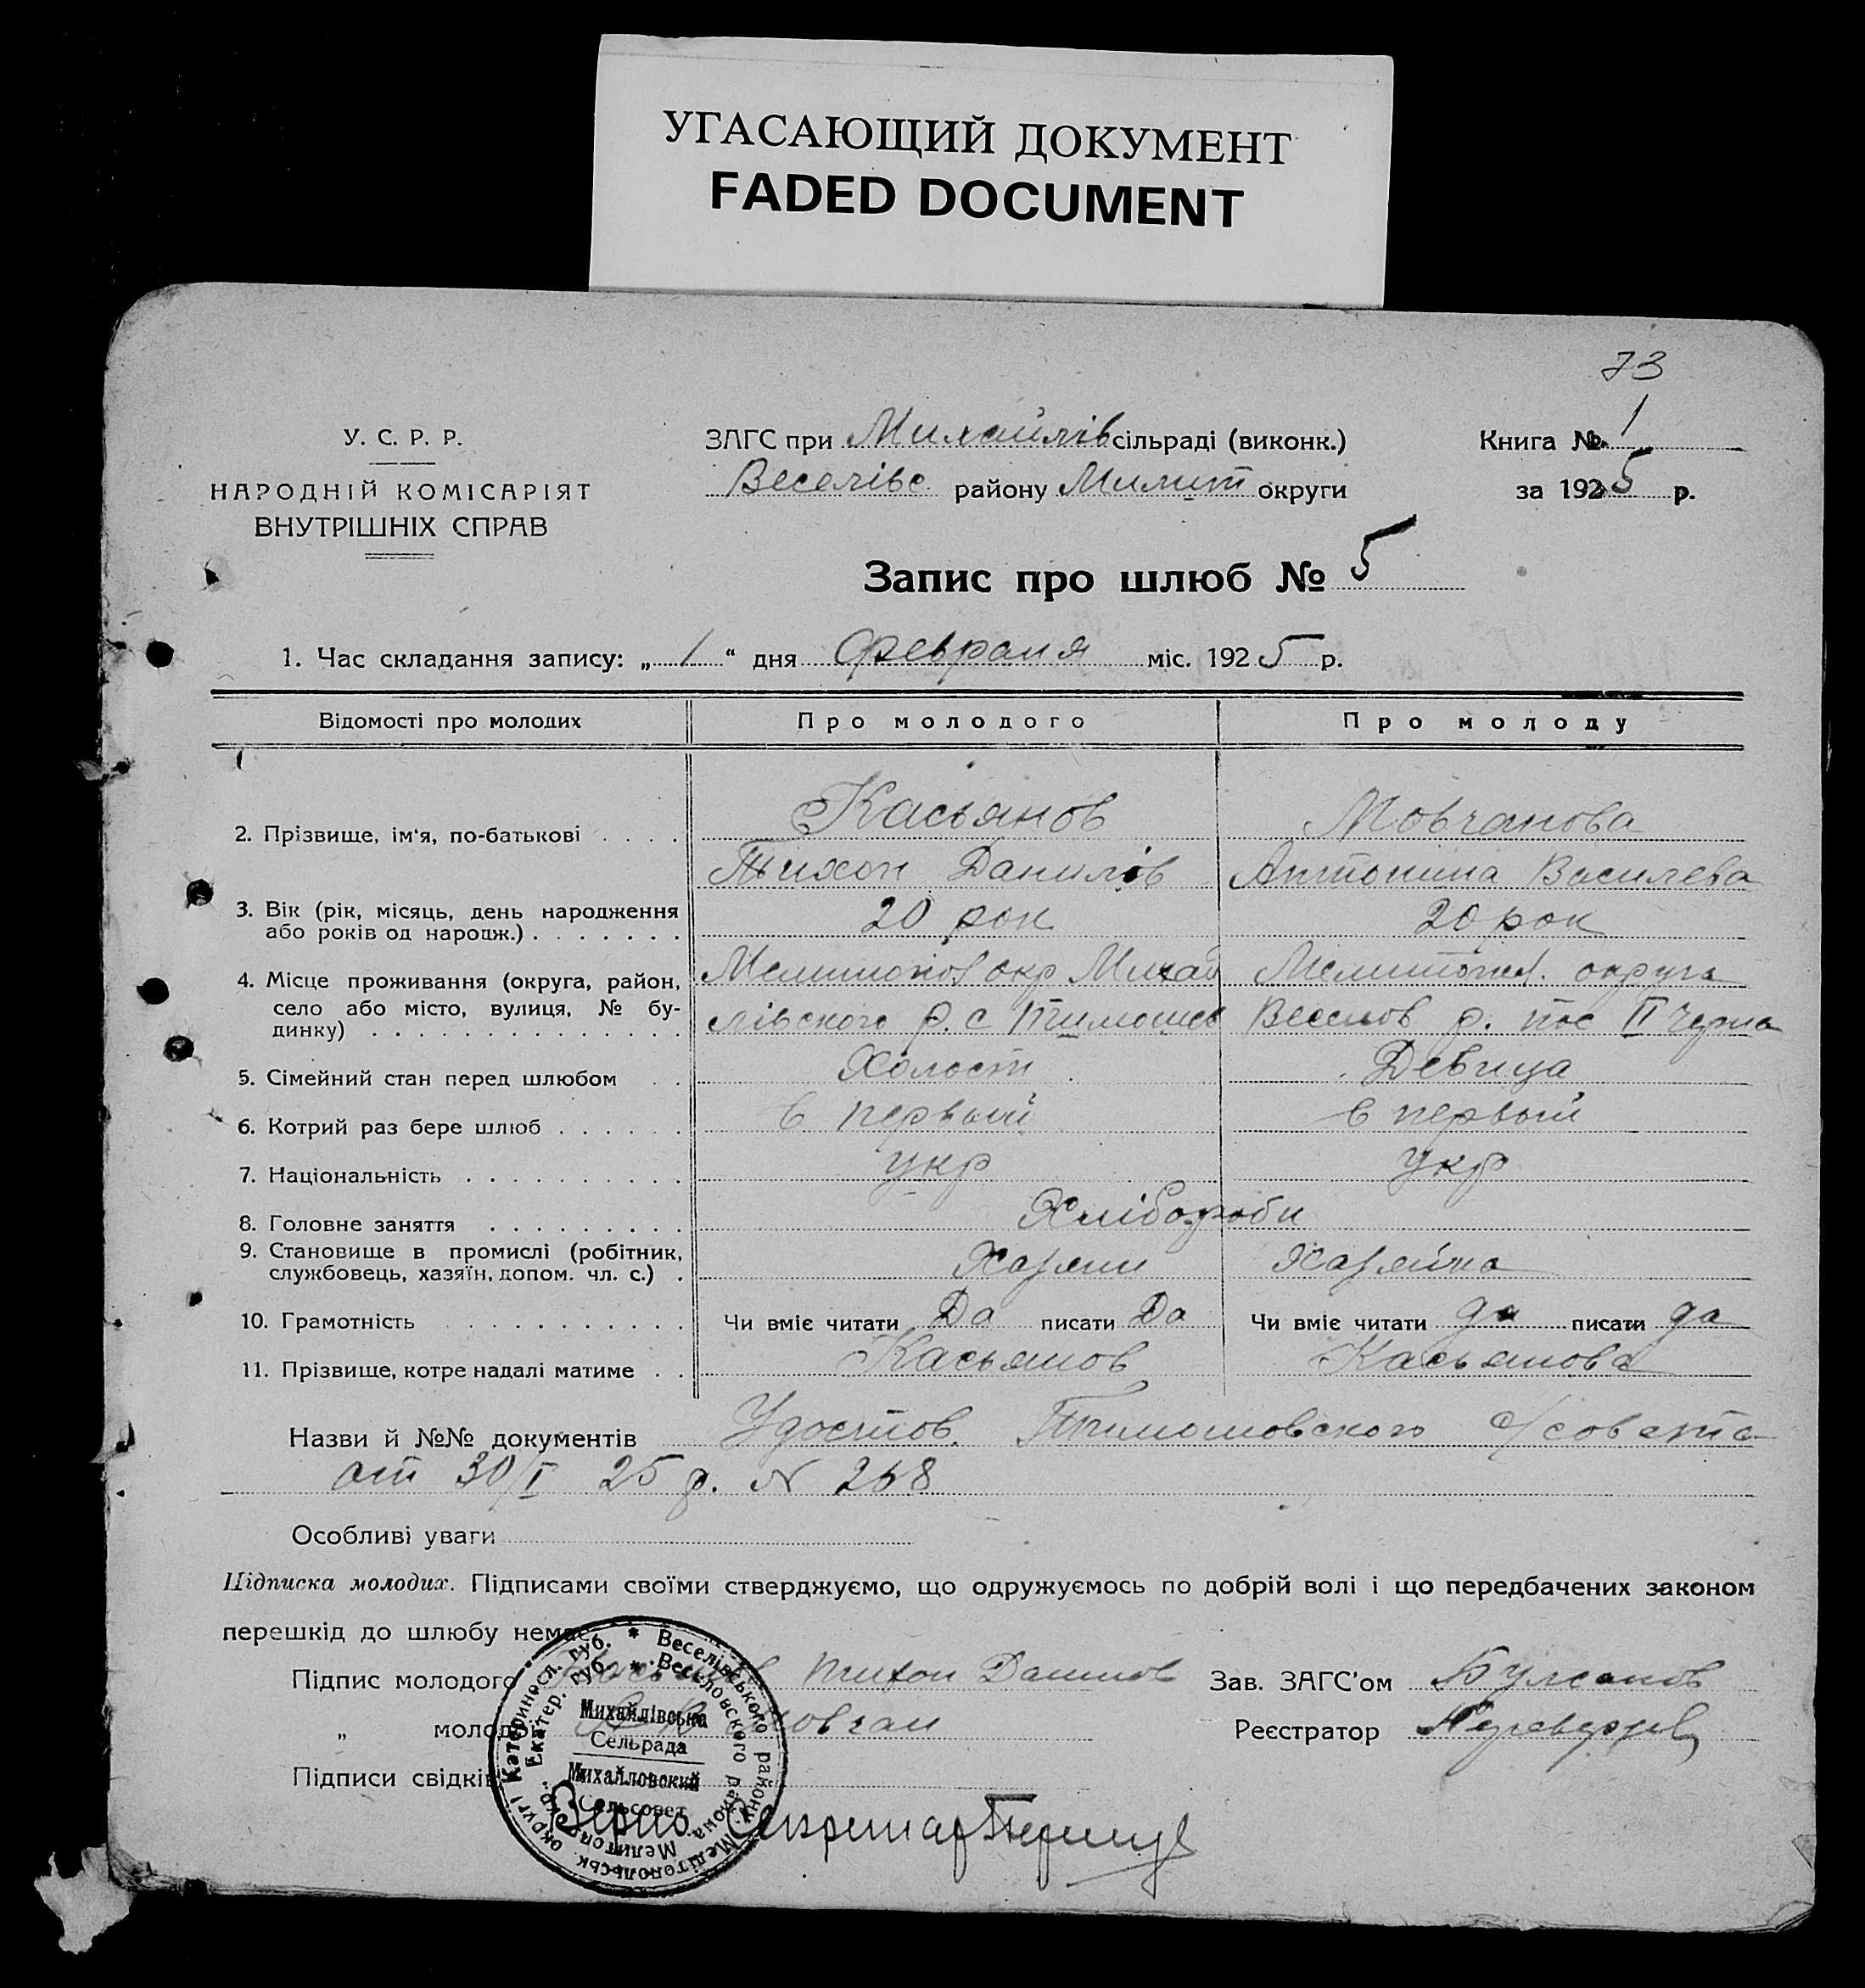 УГАСАЮЩИЙ ДОКУМЕНТ
FADED DOCUMENT
73
У. С. Р. Р.
НАРОДНІЙ КОМІСАРІЯТ
ВНУТРІШНІХ СПРАВ
ЗАГС при Михайлів сільраді (виконк.)
Веселівс району Милит округи
Книга № 1
за 1925 р.
Запис про шлюб № 5
1. Час складання запису: „ 1 “ дня Февраля міс. 1925 р.
Відомості про молодих Про молодого Про молоду
2. Прізвище, ім'я, по-батькові Касьянов Мовчанова
Тихон Данилів Антонина Василева
3. Вік (рік, місяць, день народження або років од народж.) 20 рок 20 рок
4. Місце проживання (округа, район, село або місто, вулиця, № будинку) Мелитопол окр Михай Мелитопол. округа
лівского р. с Тимошев Веселов р. пос II Черна
5. Сімейний стан перед шлюбом Холост Девица
6. Котрий раз бере шлюб в первый в первый
7. Національність укр укр
8. Головне заняття Хлібороби
9. Становище в промислі (робітник, службовець, хазяїн, допом. чл. с.) Хазяин Хазяйка
10. Грамотність Чи вміє читати Да писати Да Чи вміє читати да писати да
11. Прізвище, котре надалі матиме Касьянов Касьянова
Назви й №№ документів Удостов. Тимошовского с/совета
от 30/I 25 р. N 268
Особливі уваги
Підписка молодих. Підписами своїми стверджуємо, що одружуємось по добрій волі і що передбачених законом
перешкід до шлюбу немає
Підпис молодого Тихон Данилов Зав. ЗАГС'ом
„ молодої Мовчан Реєстратор
Підписи свідків
Верно: Секретар
Катериносл. губ. * Веселівського району Мелітопольськ. округі
Екатер. губ. * Веселовского района Мелитопольско.
Михайлівська
Сельрада
Михайловский
Сельсовет